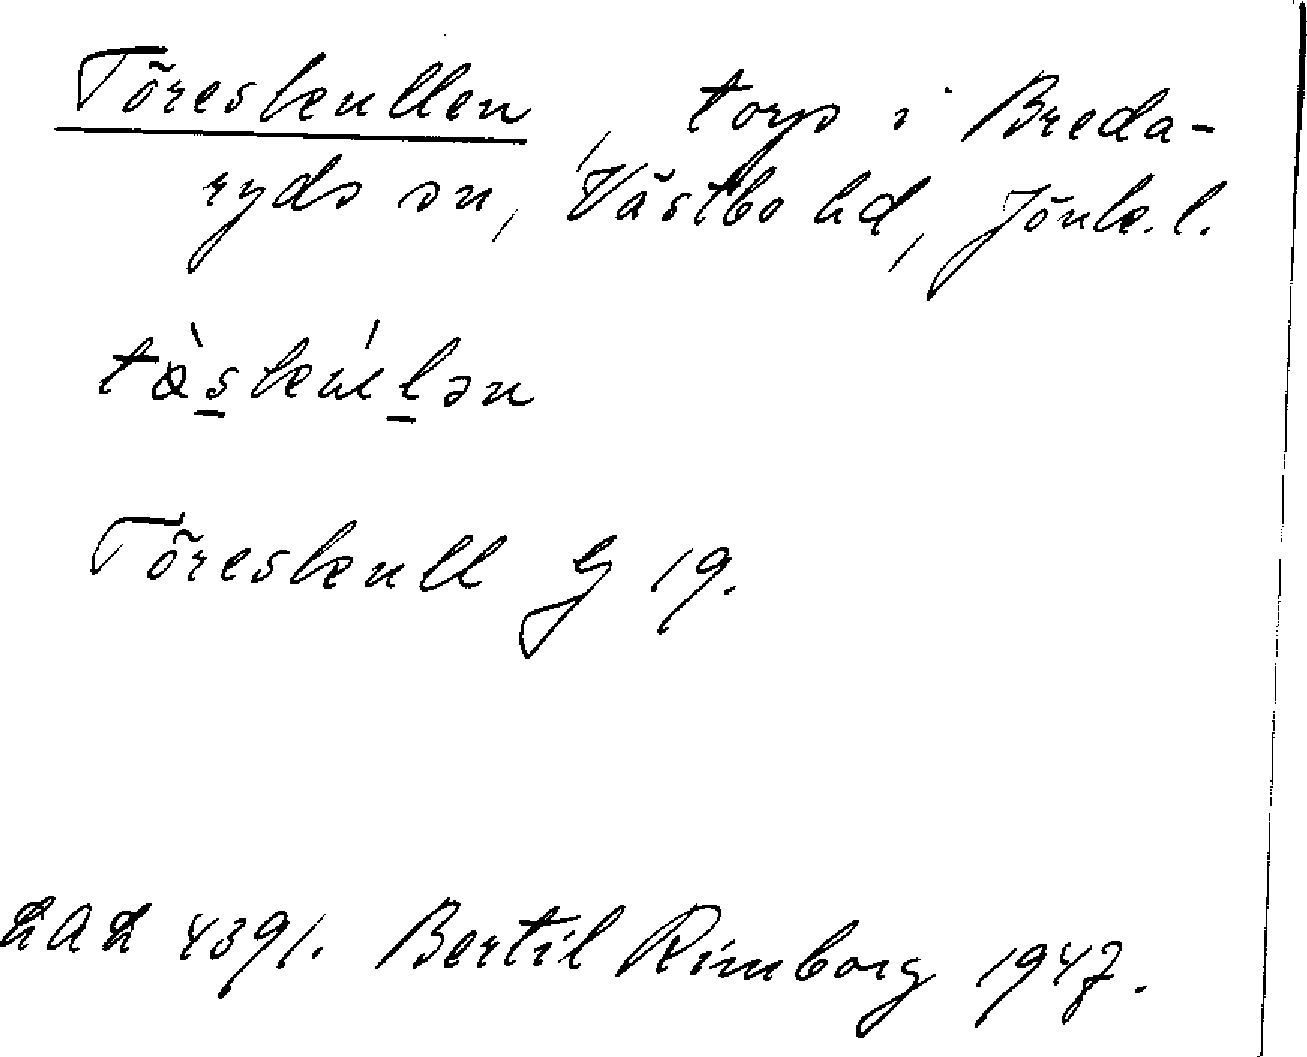 Töreskullen, torp i Breda-
ryds sn, Västbo hd, Jönk. l.
tø̀skúlən
Töreskull G 19.
LAL 4391. Bertil Rimborg 1947.